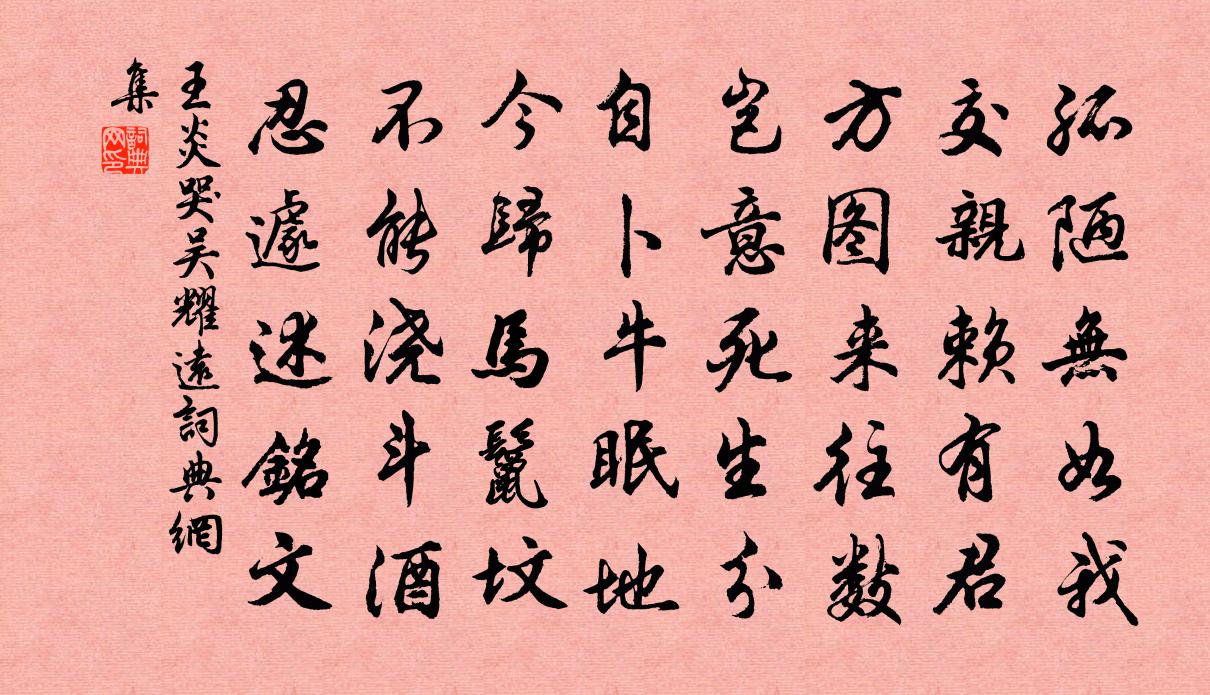 孤陋無如我
交親賴有君
方图来往数
岂意死生分
自卜牛眠地
今歸馬鬣坟
不能浇斗酒
忍遽述銘文
王炎哭吴耀遠詞典網
集
詞典網印